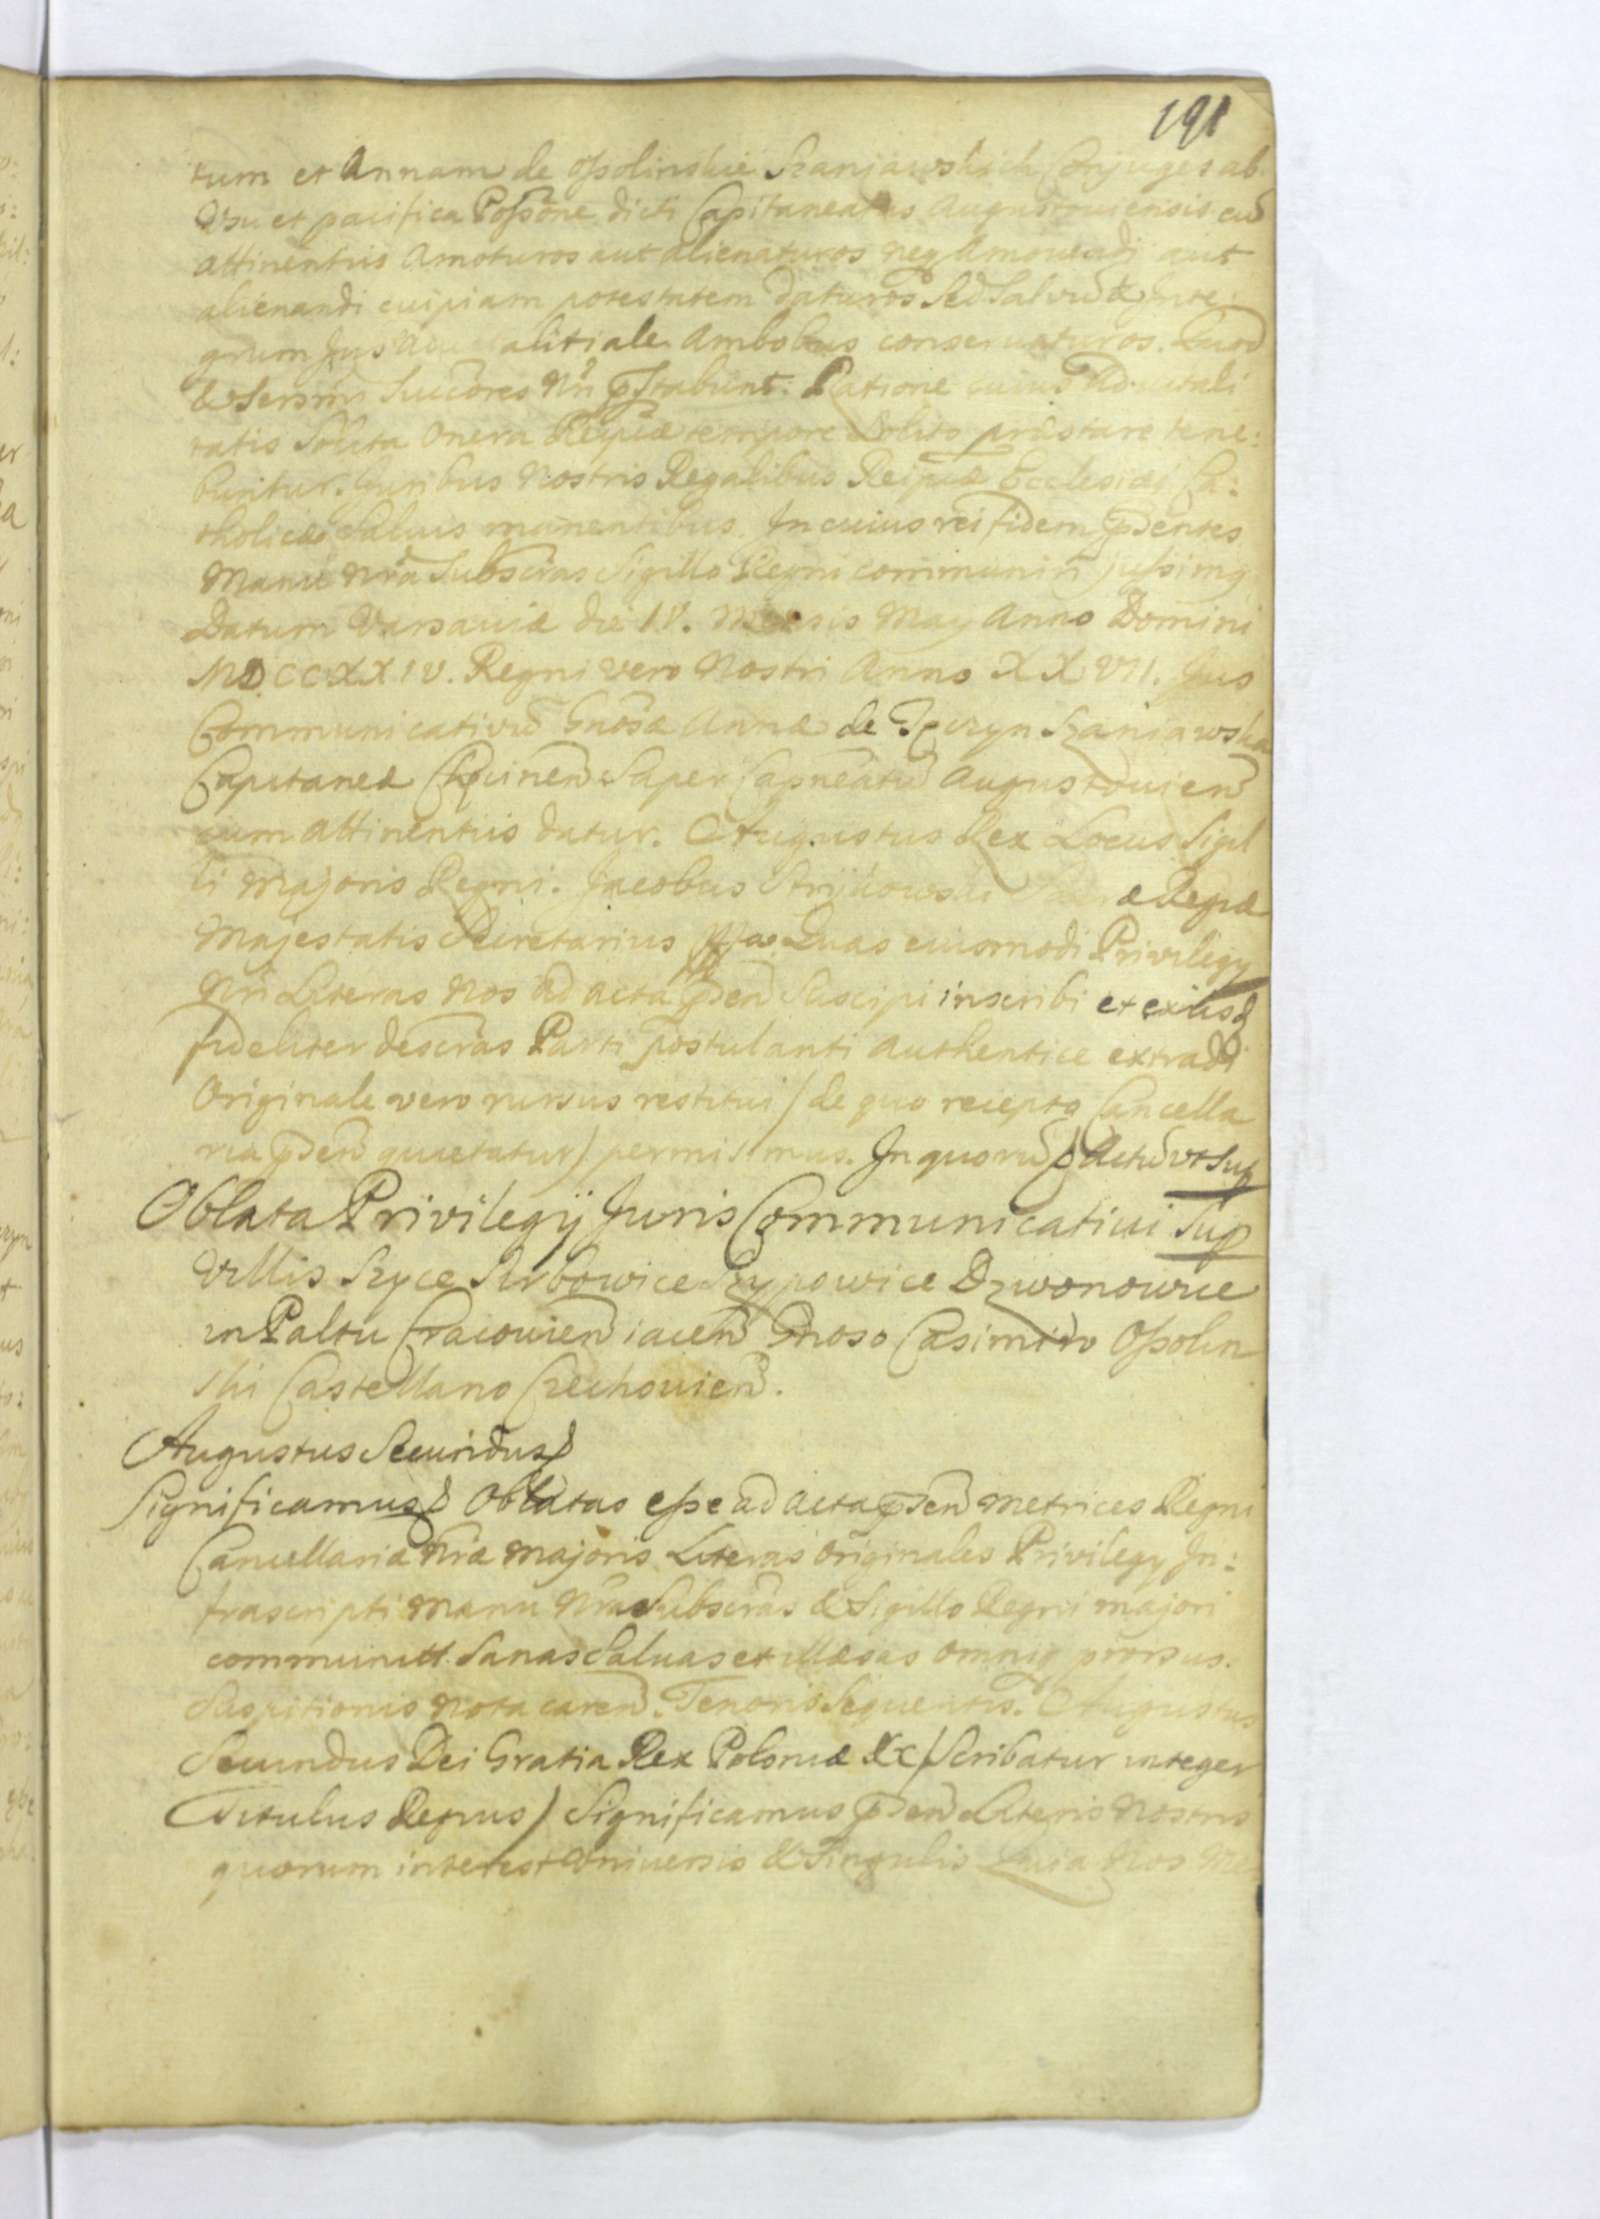 191
tum et Annam de Ossolinskie Szaniawskich Conjuges ab
Vsu et pacifica Possõne dicti Capitaneatus Augustouiensis cũ
attinentiis Amoturos aut alienaturos neq Amouendi aut
alienandi cuipiam potestatem daturos Sed Salvũ & Inte:
grum Jus alitiale Ambobus conseruaturos. Quod
& Serẽmi Succores Nri pstabunt. Ratione cuius Aduitali
tatis Solita Onera Reipcæ tempore Solito præstare tene:
buntur. Juribus Nostris Regalibus Reipcæ Ecclesiæq Ca:
tholicæ Saluis manentibus. In cuius rei fidem pñtes
Manu Nrã Subscras Sigillo Regni communiri jussimq
Datum Varsauiæ die IV. Mensis May Anno Domini
MDCCXXIV. Regni vero Nostri Anno XXVII. Jus
Communicativũ Gnosæ Annæ de Tęczyn Szaniawska
Capitaneæ Chęcinen Super Capneatũ Augustouien
cum attinentiis datur. Augustus Rex Locus Sigil
li Majoris Regni. Jacobus Strijkowski æ Regiæ
Majestatis Secretarius mpa. Quas eiusmodi Privilegy
Nri Literas Nos ad acta pñen Suscipi inscribi et exiisd
fideliter descras Parti postulanti authentice extradi
Originale vero rursus restitui / de quo recepto Cancella
ria pñen quietatur / permisimus. In quorũ & Actũ vt Sup
Oblata Privilegij Juris Communicatiui Sup
Villis Szyce Sierbowice Szypowice Dzwonowice
in Paltu Cracouien iacen Gnoso Casimiro Ossolin
ski Castellano Czechouien.
Augustus Secundus &
Significamus & Oblatas esse ad acta pñen Metrices Regni
Cancellariæ Nræ Majoris Literas Originales Privilegy In:
frascripti Manu Nra Subscras & Sigillo Regni majori
communitt. Sanas Saluas et illæsas Omniq prorsus.
Suspitionis Nota caren. Tenoris Sequentis. Augustus
Secundus Dei Gratia Rex Poloniæ &c / Scribatur integer
Titulus Regius / Significamus pñen Literis Nostris
quorum interest Vniuersis & Singulis Quia Nos